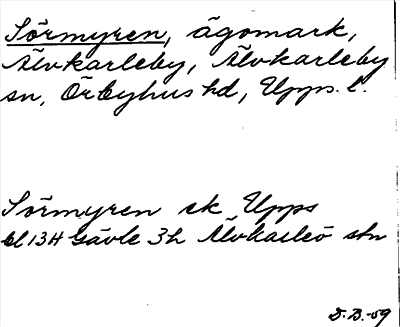 Sörmyren, ägomark,
Älvkarleby, Älvkarleby
sn, Örbyhus hd, Upps. l.
Sörmyren ek Upps
bl 13H Gävle 3h Älvkarleö stn
D.B.-59